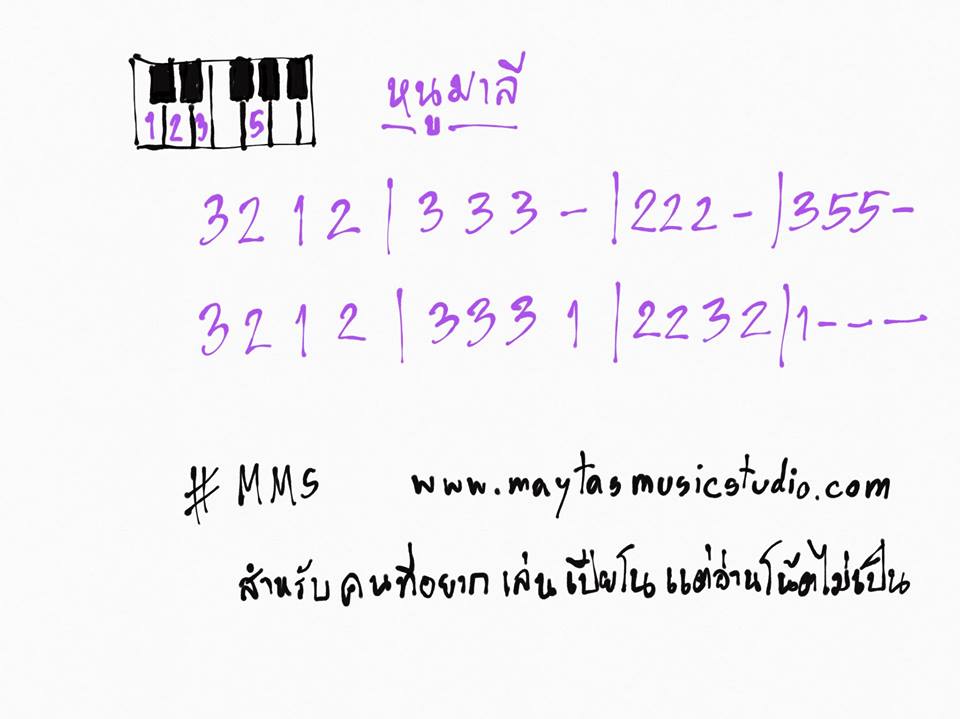 1 2 3 5
หนูมาลี
3 2 1 2 | 3 3 3 - | 2 2 2 - | 3 5 5 -
3 2 1 2 | 3 3 3 1 | 2 2 3 2 | 1 - - -
# MMS www.maytasmusicstudio.com
สำหรับ คนที่อยาก เล่น เปียโน แต่อ่านโน้ตไม่เป็น